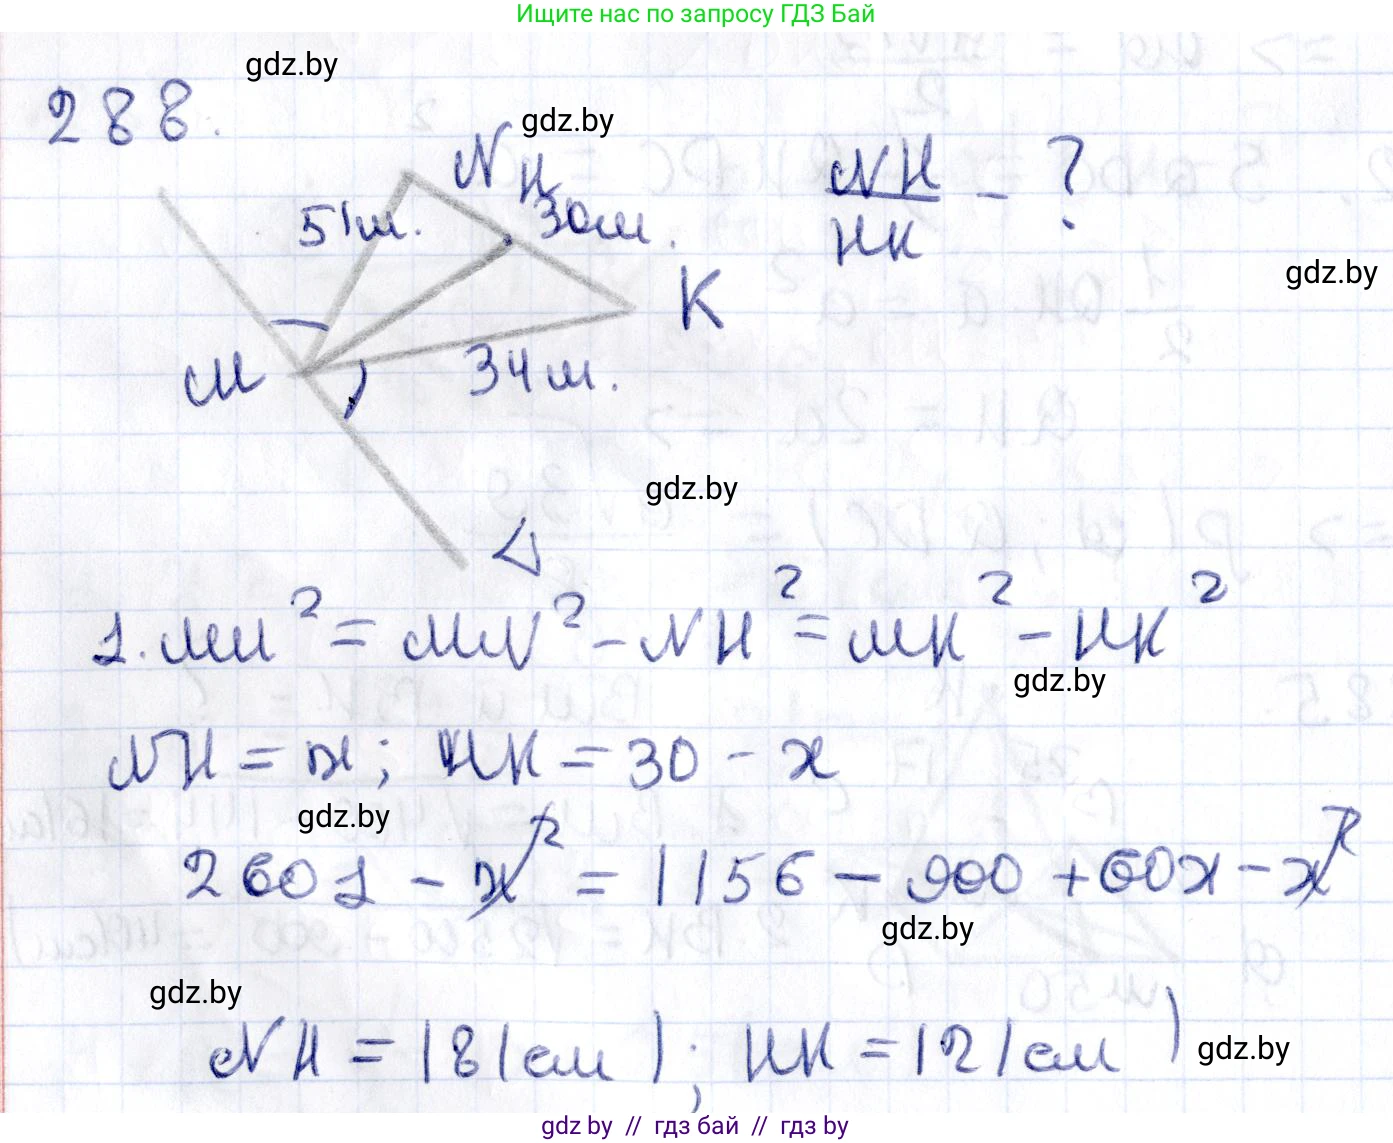 Ищите нас по запросу ГДЗ Бай
gdz.by
288.
gdz.by
N
H
51м.
30м.
NH
HK
- ?
gdz.by
K
M
34м.
gdz.by
1. MH² = MN² - NH² = MK² - HK²
gdz.by
NH = x; HK = 30 - x
gdz.by
2601 - x² = 1156 - 900 + 60x - x²
gdz.by
gdz.by
NH = 18 (см); HK = 12 (см)
gdz.by
gdz by // гдз бай // гдз by